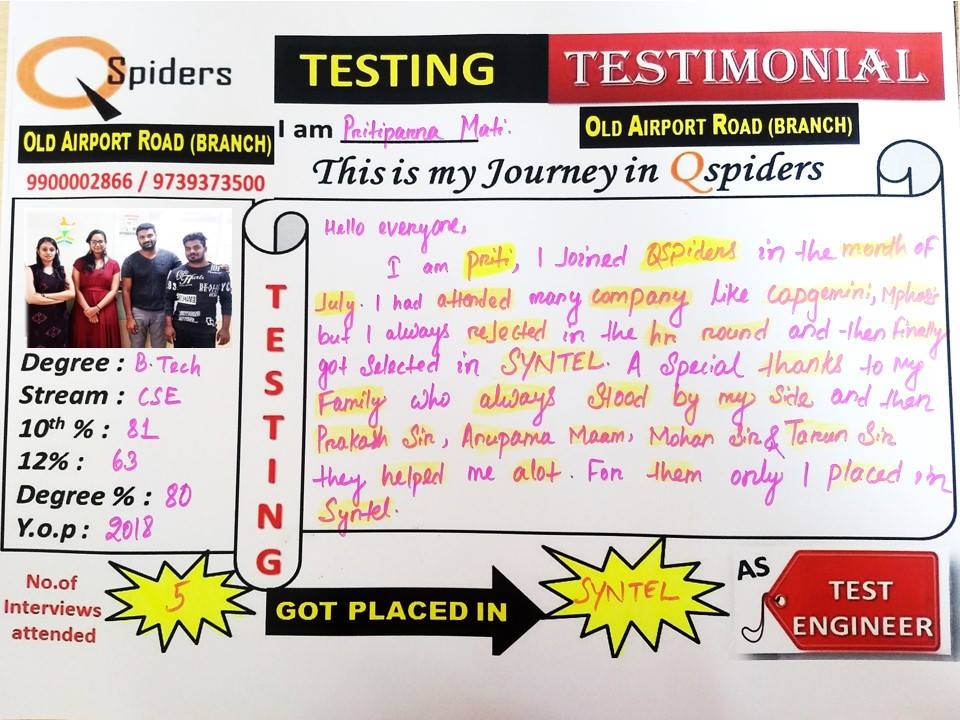 QSpiders
TESTING TESTIMONIAL
OLD AIRPORT ROAD (BRANCH)
9900002866 / 9739373500
I am Pritiparna Mati.
OLD AIRPORT ROAD (BRANCH)
This is my Journey in Qspiders
Degree : B.Tech
Stream : CSE
10th % : 81
12% : 63
Degree % : 80
Y.o.p : 2018
TESTING
Hello everyone,
I am priti, I Joined QSpiders in the month of
July. I had attended many company like capgemini, Mphasis
but I always rejected in the hr round and then finally
got Selected in SYNTEL. A Special thanks to my
Family who always Stood by my Side and then
Prakash Sir, Anupama Maam, Mohan Sir & Tarun Sir
they helped me alot. For them only I placed in
Syntel.
No.of
Interviews
attended
5
GOT PLACED IN
SYNTEL
AS
TEST
ENGINEER